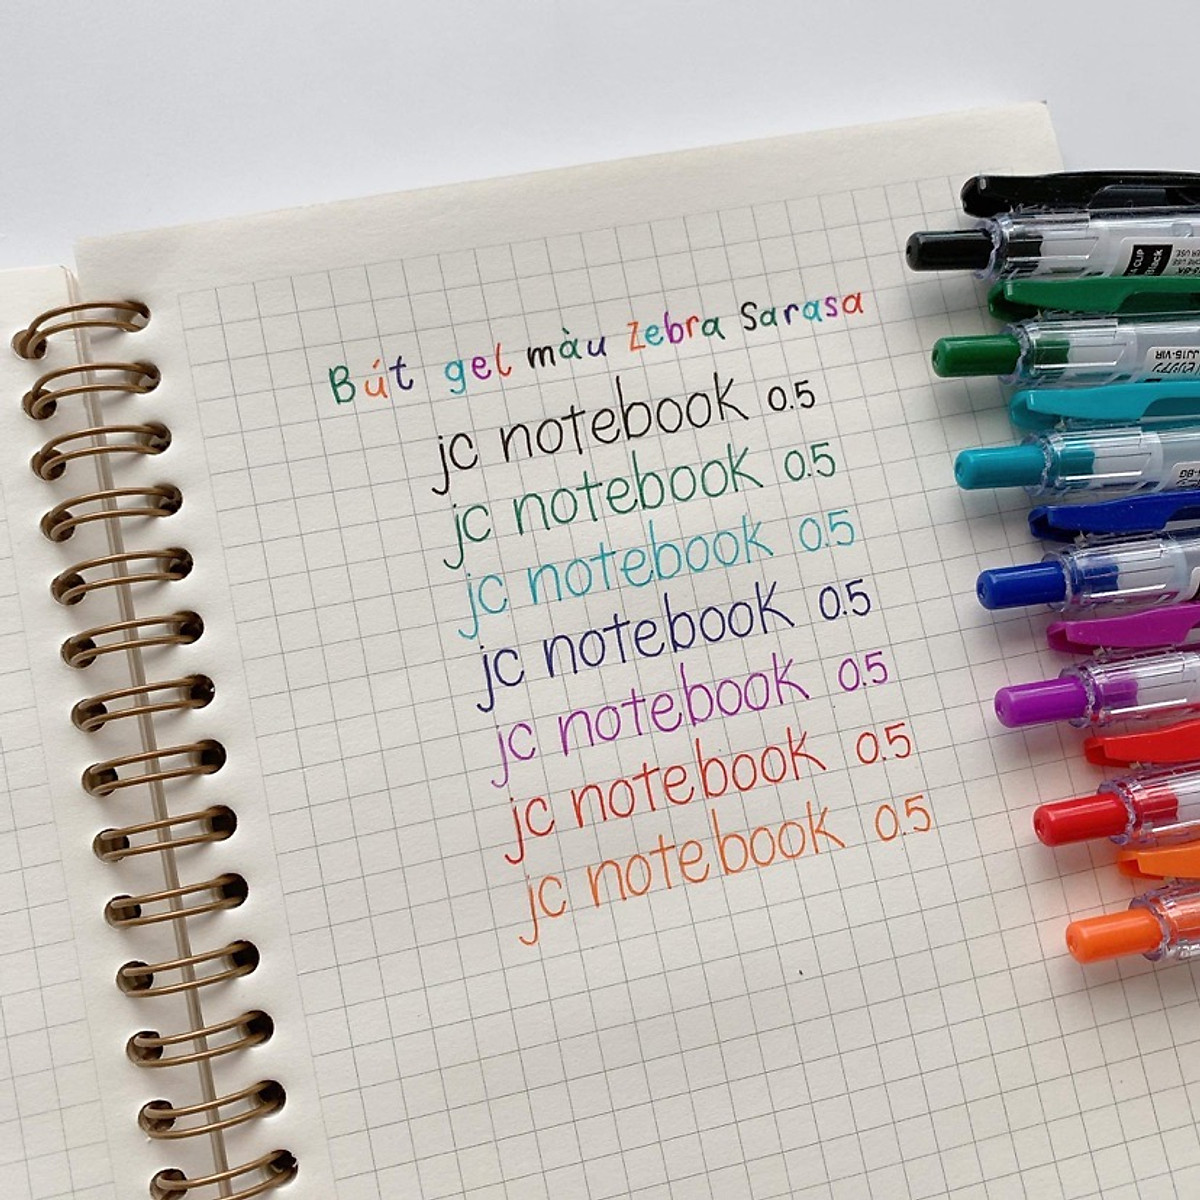 Bút gel màu Zebra Sarasa
jc notebook 0.5
jc notebook 0.5
jc notebook 0.5
jc notebook 0.5
jc notebook 0.5
jc notebook 0.5
jc notebook 0.5
CLIP
Black
JJ15-VIR